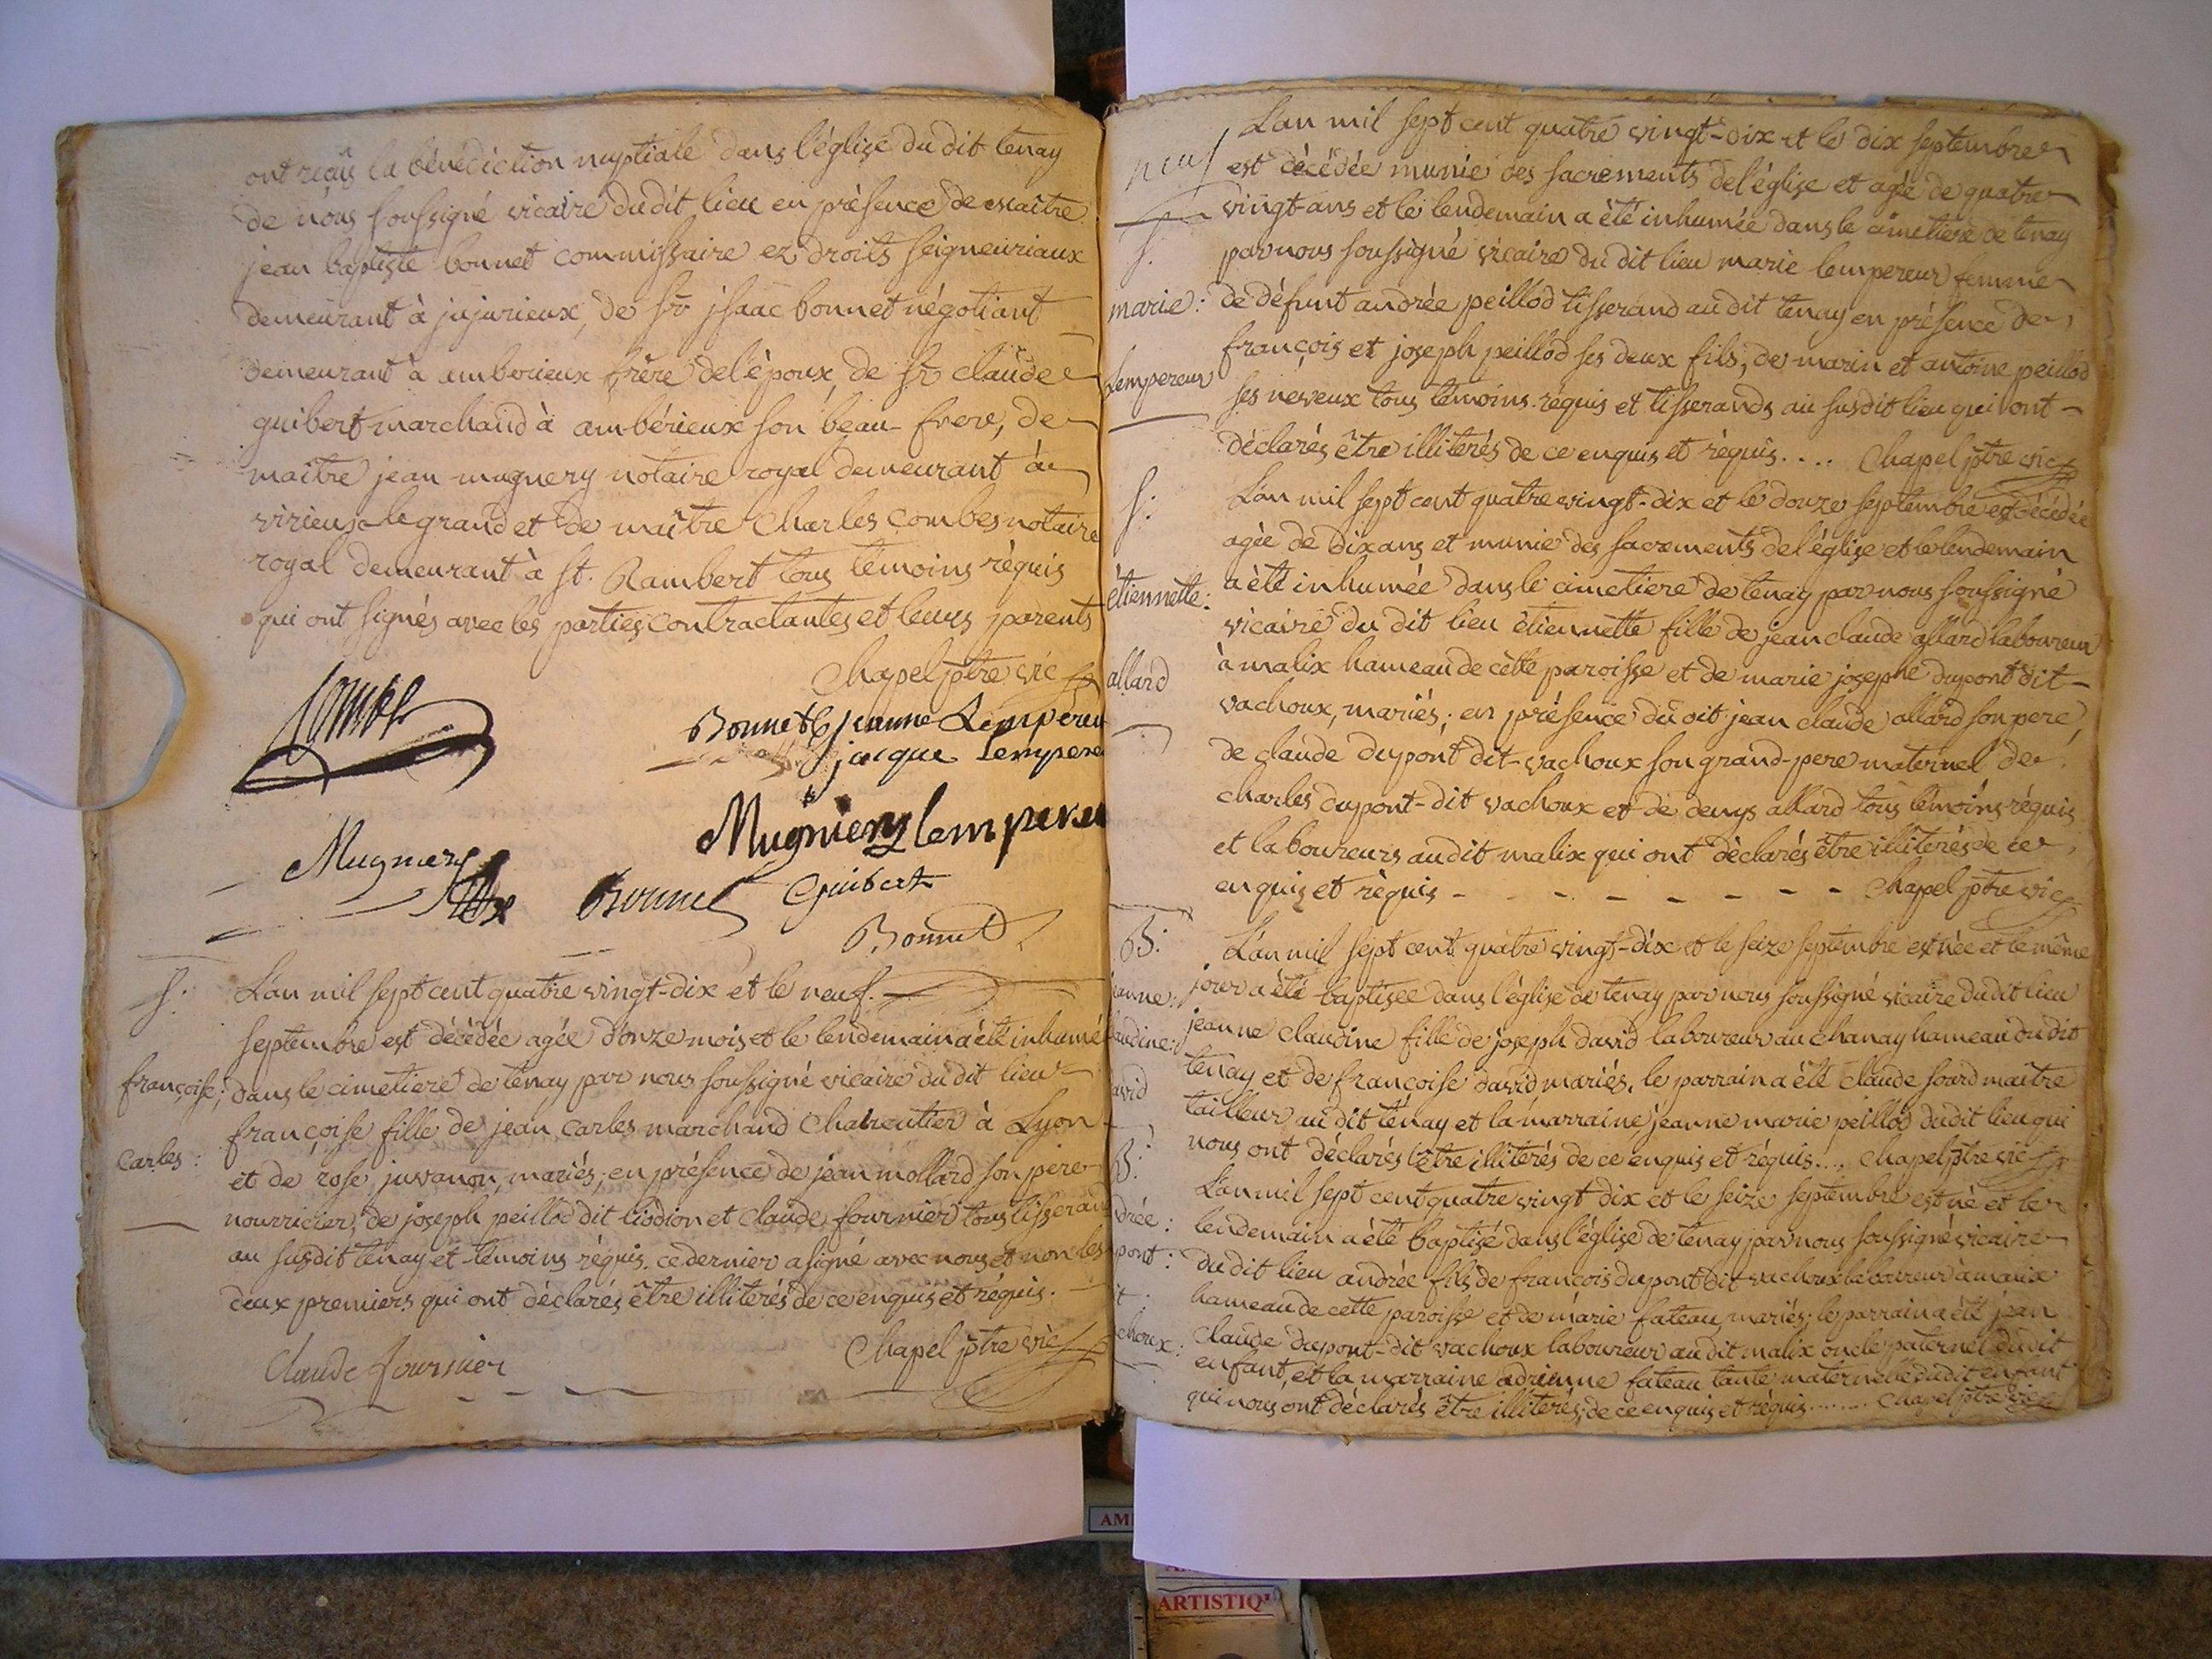 ont reçus la bénédiction nuptiale dans l'église du dit tenay
de nous soussigné vicaire dudit lieu en présence de maitre
jean baptiste bonnet commissaire ez droits seigneuriaux
demeurant à jujurieux, de sr jsaac bonnet négotiant
demeurant à amberieux frère de l'époux, de sr claude
guibert marchand à ambérieux son beau-frere, de
maitre jean mugnery notaire royal demeurant à
virieux le grand et de maître Charles Combes notaire
royal demeurant à st. Rambert tous témoins réquis
qui ont signés avec les parties contractantes et leurs parents
Chapel ptre vic
Combe
Bonnet jeanne Lempereur
jacque Lempere
Mugniery lempereu
Mugnery
Bonnet Guibert
Bonnet
S. L'an mil sept cent quatre vingt-dix et le neuf.
septembre est décédée agée d'onze mois et le lendemain a été inhumé
françoise: dans le cimetiere de tenay par nous soussigné vicaire du dit lieu
françoise fille de jean Carles marchand Chaircutier à Lyon
Carles: et de rose juvanon, mariés; en présence de jean mollard son pere
nourricier, de joseph peillod dit liodion et claude fournier tous tisserand
au susdit tenay et témoins réquis. ce dernier a signé avec nous et non les
deux premiers qui ont déclarés être illitérés de ce enquis et réquis.
Claude fournier Chapel ptre vic
L'an mil sept cent quatre vingt-dix et le dix septembre
neuf est décédée munie des sacrements de l'église et agée de quatre
vingt-ans et le lendemain a été inhumée dans le cimetiere de tenay
S. par nous soussigné vicaire du dit lieu marie lempereur femme
marie: de défunt andrée peillod tisserand au dit tenay en présence de
françois et joseph peillod ses deux fils, de marin et antoine peillod
Lempereur ses neveux tous témoins réquis et tisserands au susdit lieu qui ont
déclarés être illiterés de ce enquis et réquis.... Chapel ptre vic
S: L'an mil sept cent quatre vingt-dix et le douze septembre est décédée
agée de dix ans et munie des sacrements de l'église et le lendemain
étiennette: a été inhumée dans le cimetiere de tenay par nous soussigné
vicaire du dit lieu étiennette fille de jean claude allard laboureur
allard à malix hameau de cette paroisse et de marie josephe dupont dit
vachoux, mariés; en présence du dit jean claude allard son pere,
de claude dupont dit-vachoux son grand-pere maternel de
charles dupont-dit vachoux et de denys allard tous témoins réquis
et laboureurs au dit malix qui ont déclarés être illitérés de ce
enquis et réquis - - - - - - - Chapel ptre vic
B: L'an mil sept cent quatre vingt-dix et le seize septembre est née et le même
jeanne: jour a été baptisée dans l'église de tenay par nous soussigné vicaire du dit lieu
laudine: jeanne claudine fille de joseph david laboureur au chanay hameau du dit
avid tenay et de françoise david mariés. le parrain a été claude soard maitre
tailleur au dit tenay et la marraine jeanne marie peillod du dit lieu qui
nous ont déclarés être illitérés de ce enquis et réquis.... Chapel ptre vic
B: L'an mil sept cent quatre vingt dix et le seize septembre est né et le
drée: lendemain a été baptisé dans l'église de tenay par nous soussigné vicaire
pont: du dit lieu andrée fils de francois dupont dit vachoux laboureur à malix
it: hameau de cette paroisse et de marie fateau, mariés; le parrain a été jean
choux: claude dupont-dit vachoux laboureur au dit malix oncle paternel du dit
enfant, et la marraine adrienne fateau tante maternelle du dit enfant
qui nous ont déclarés être illitérés; de ce enquis et réquis........ Chapel ptre vic
AM
ARTISTIQ